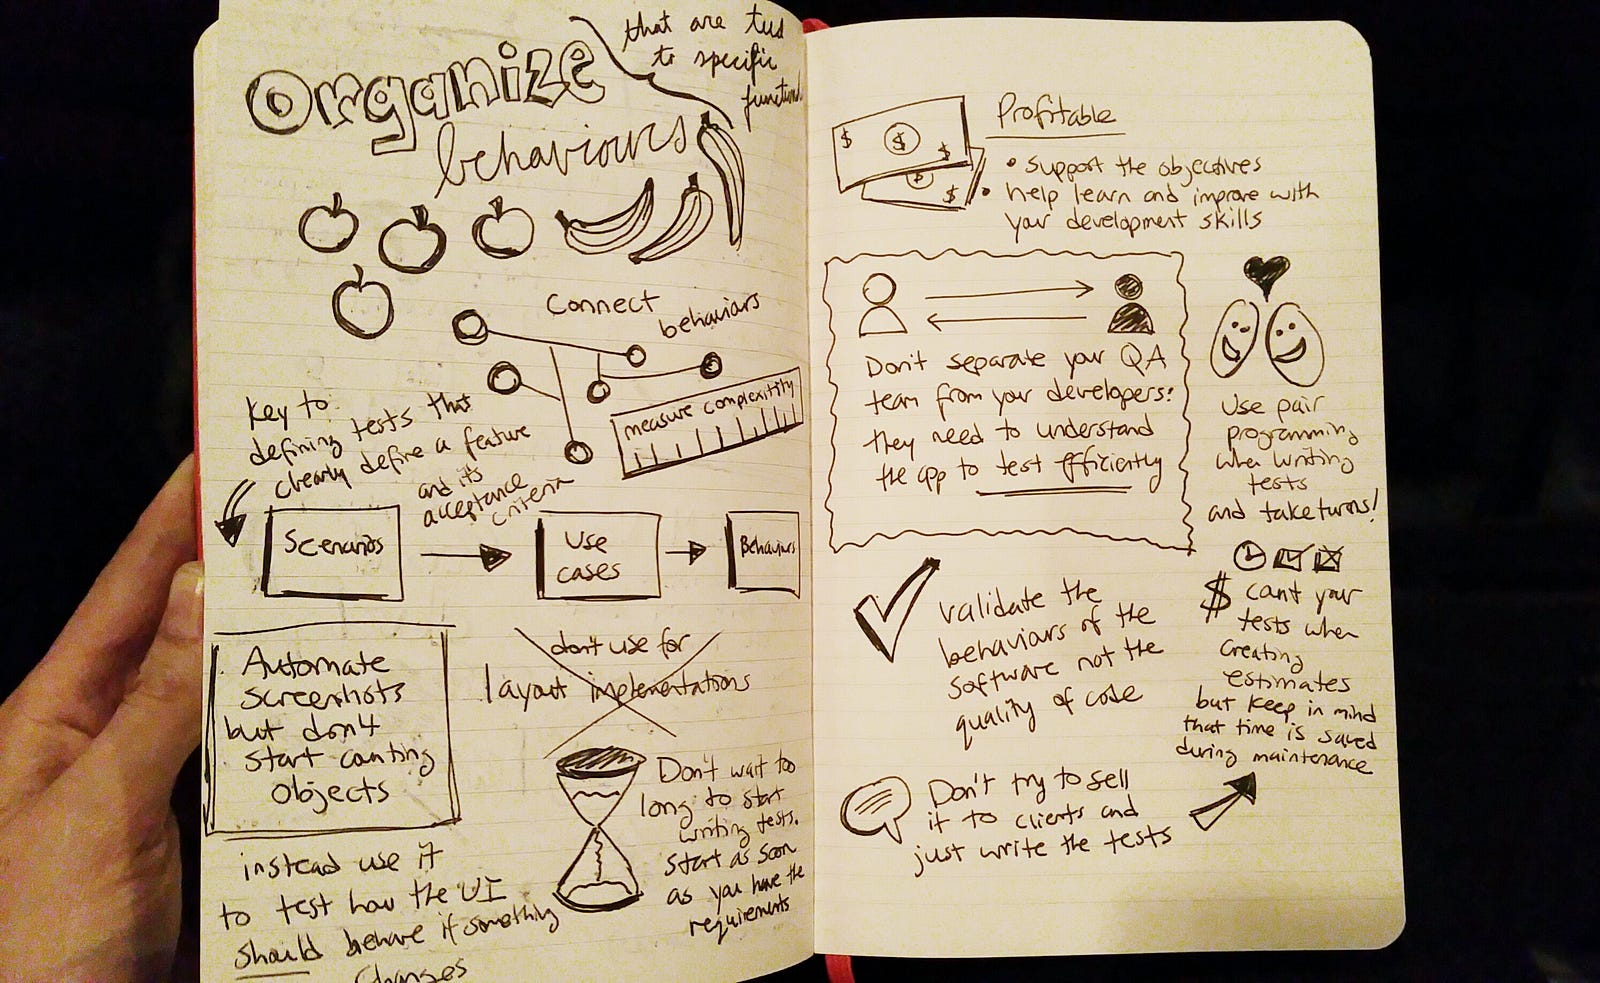 Organize
behaviours
that are tied
to specific
functional
Connect
behaviors
measure complexitity
Key to
defining tests that
clearly define a feature
and its
acceptance
criteria
Scenarios
Use
cases
Behaviors
Automate
screenshots
but don't
start counting
objects
don't use for
layout implementations
instead use it
to test how the UI
should behave if something
changes
Don't wait too
long to start
writing tests.
start as soon
as you have the
requirements
$ $ $
$ $
Profitable
• support the objectives
• help learn and improve with
your development skills
Don't separate your QA
team from your developers:
they need to understand
the app to test efficiently
Use pair
programming
when writing
tests
and take turns!
validate the
behaviors of the
software not the
quality of code
$ count your
tests when
creating
estimates
but keep in mind
that time is saved
during maintenance
Don't try to sell
it to clients and
just write the tests